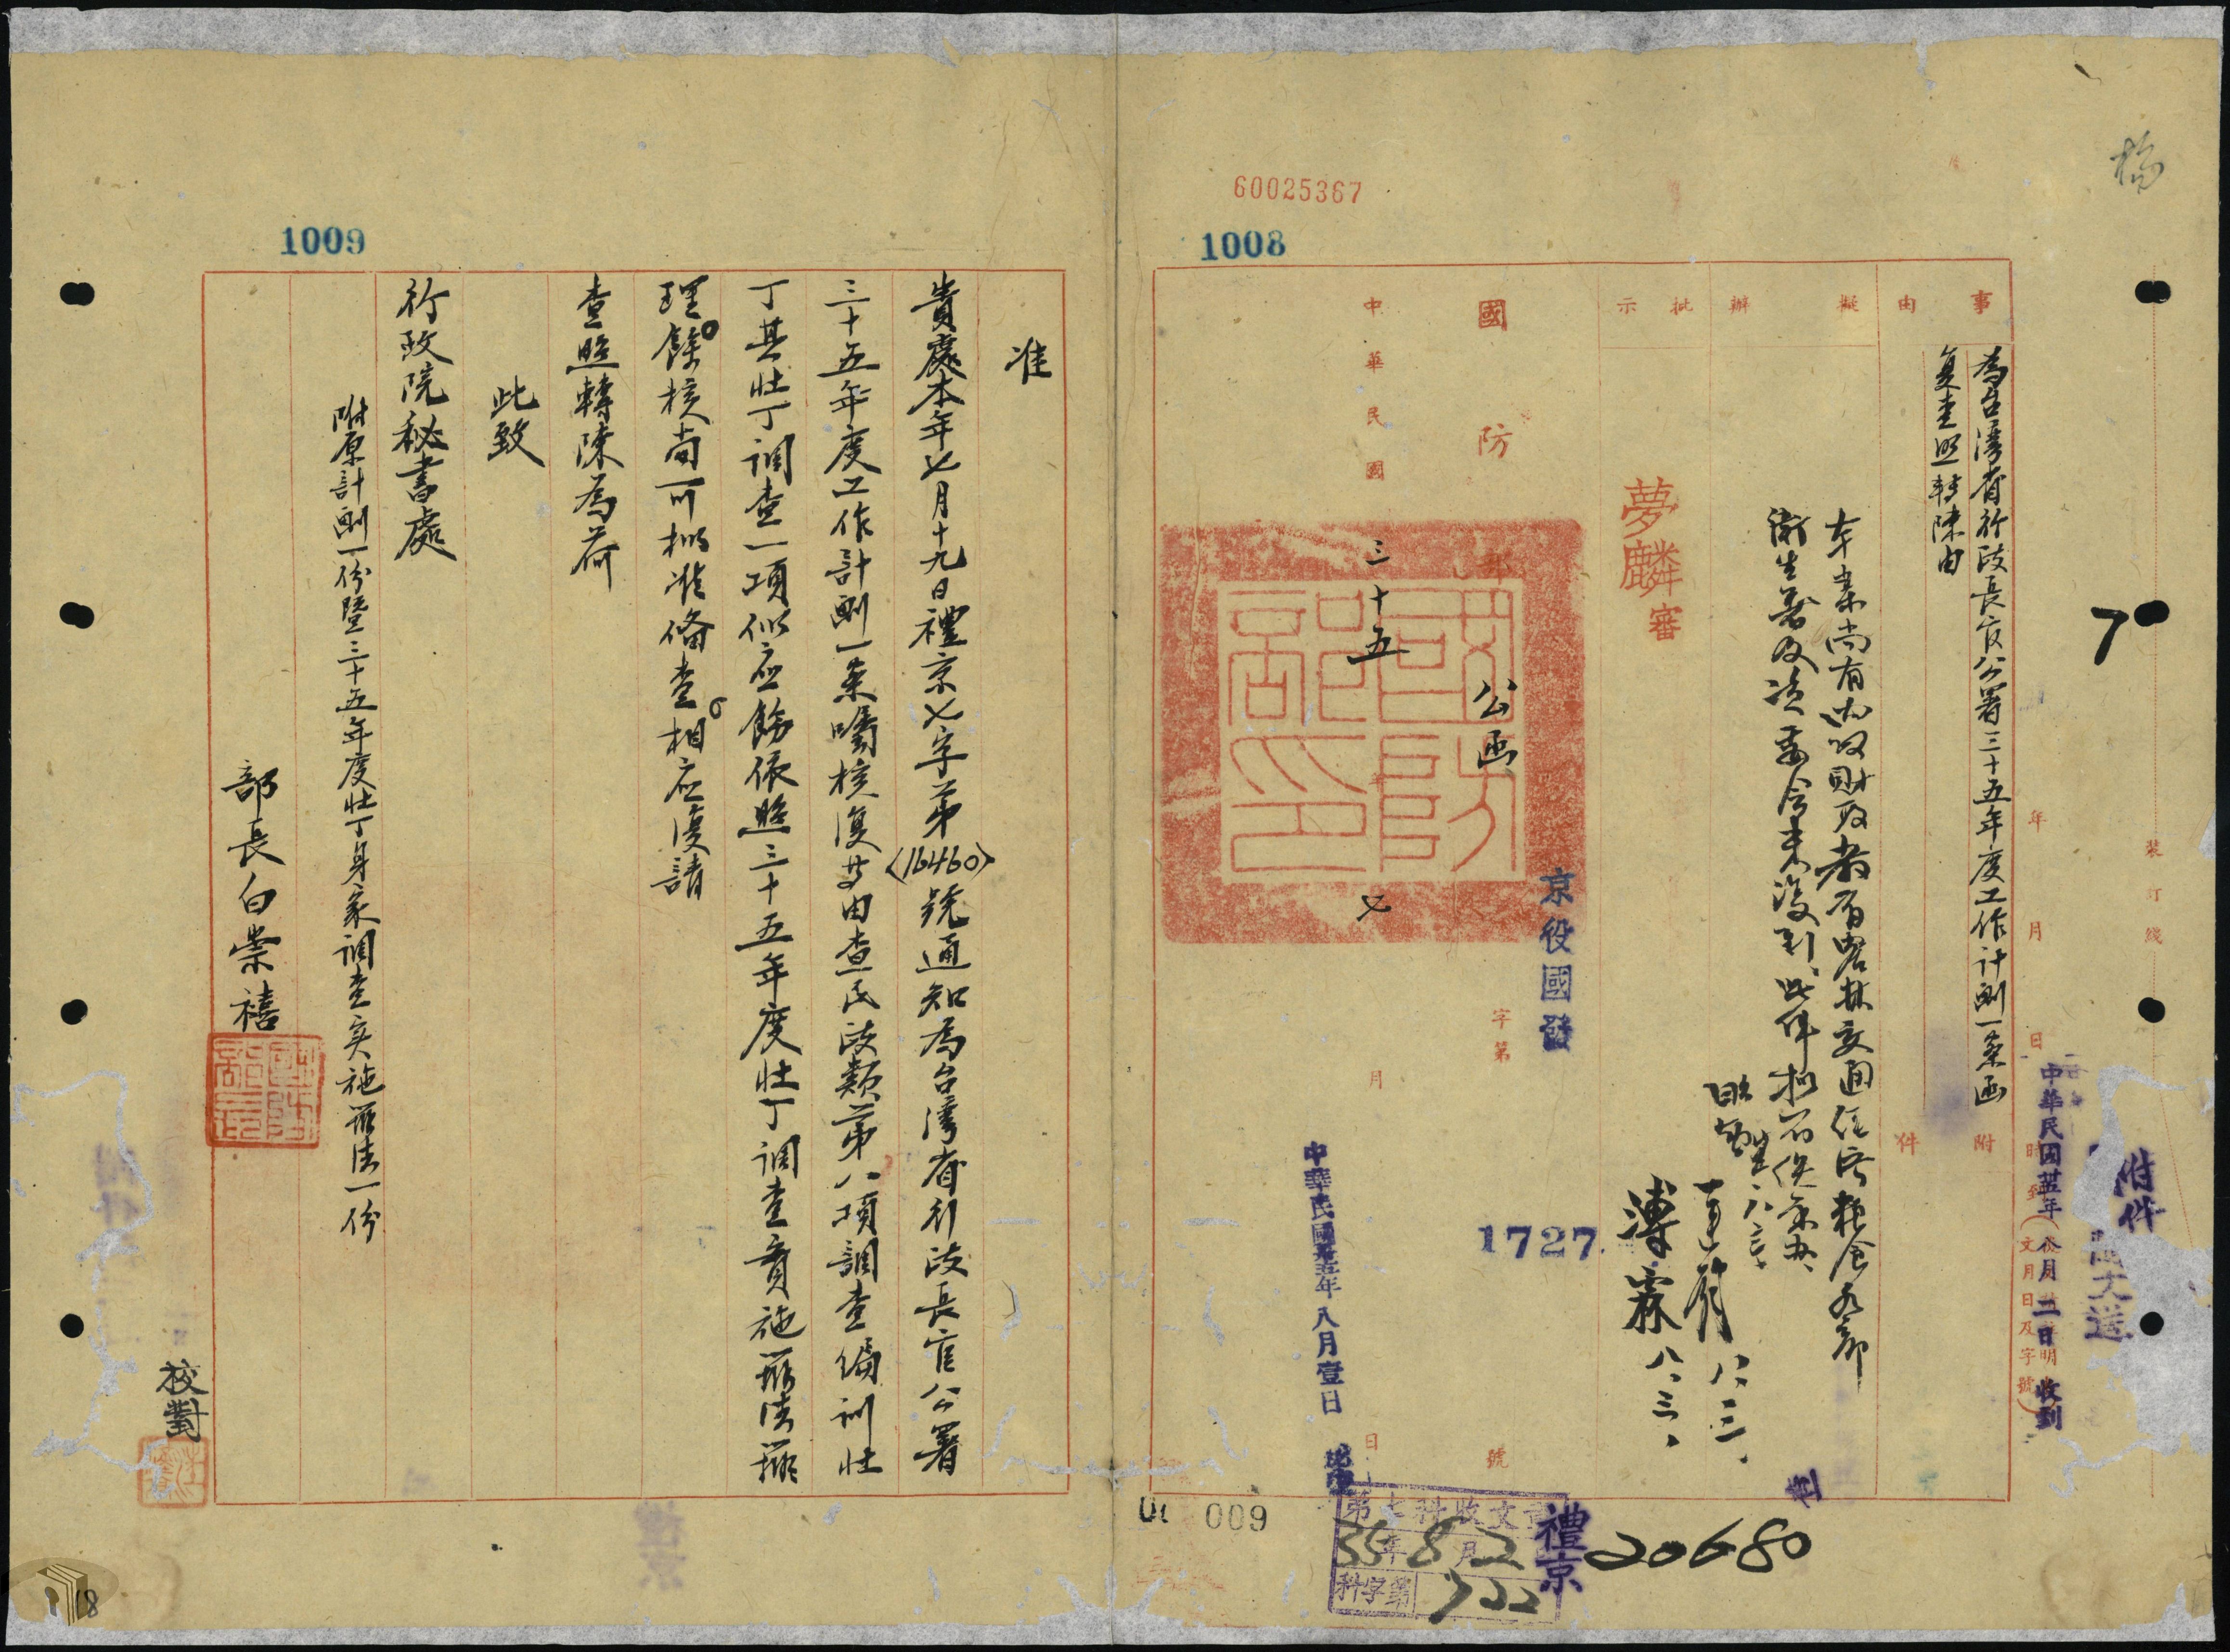 稿
60025367
1008
7
裝訂綫
年月日時到
附件
中華民國卅五年八月二日收到
事由
為台灣省行政長官公署三十五年度工作計劃一案函
復查照轉陳由
附件
擬辦
本案尚有內政財政教育農林交通經濟糧食各部
衛生署及資委會未復到此件擬存俟彙辦
八、二、
八、三、
溥霖
八、三、
批示
夢麟審
國防部
公函
京役國發
字第
1727
號
中華民國三十五年七月日
中華民國卅五年八月壹日
國防部印
第七科收文章
35年8月2
科字第722
禮京
20680
009
1009
准
貴處本年七月十九日禮京七字第
〈16460〉
號通知為台灣省行政長官公署
三十五年度工作計劃一案囑核復等由查民政類第八項調查編訓壯
丁其壯丁調查一項似应飭依照三十五年度壯丁調查實施辦法辦
理餘核尚可擬准備查相应復請
查照轉陳為荷
此致
行政院秘書處
附原計劃一份暨三十五年度壯丁身家調查实施辦法一份
部長白崇禧
校對
18